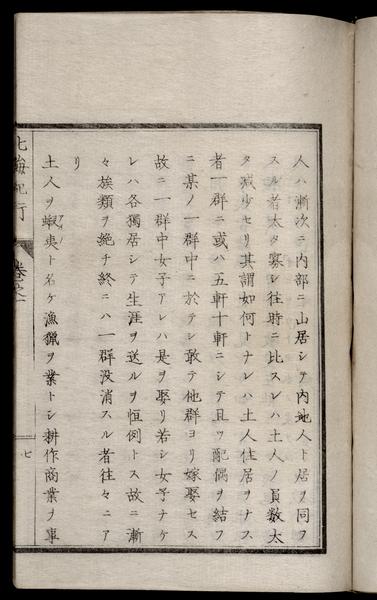 人ハ漸次ニ内部ニ山居シテ内地人ト居ヲ同フ
スル者太タ寡シ往時ニ比スレハ土人ノ員数太
タ減少セリ其謂如何トナレハ土人住居ヲナス
者一群ニ或ハ五軒十軒ニシテ且ツ配偶ヲ結フ
ニ某ノ一群中ニ於テシ敢テ他群ヨリ嫁娶セス
故ニ一群中女子アレハ是ヲ娶リ若シ女子ナケ
レハ各獨居シテ生涯ヲ送ルヲ恒例トス故ニ漸
々族類ヲ絶チ終ニハ一群没消スル者往々ニア
リ
土人ヲ蝦夷ト名ケ漁猟ヲ業トシ耕作商業ヲ事
北海紀行 巻之一
七